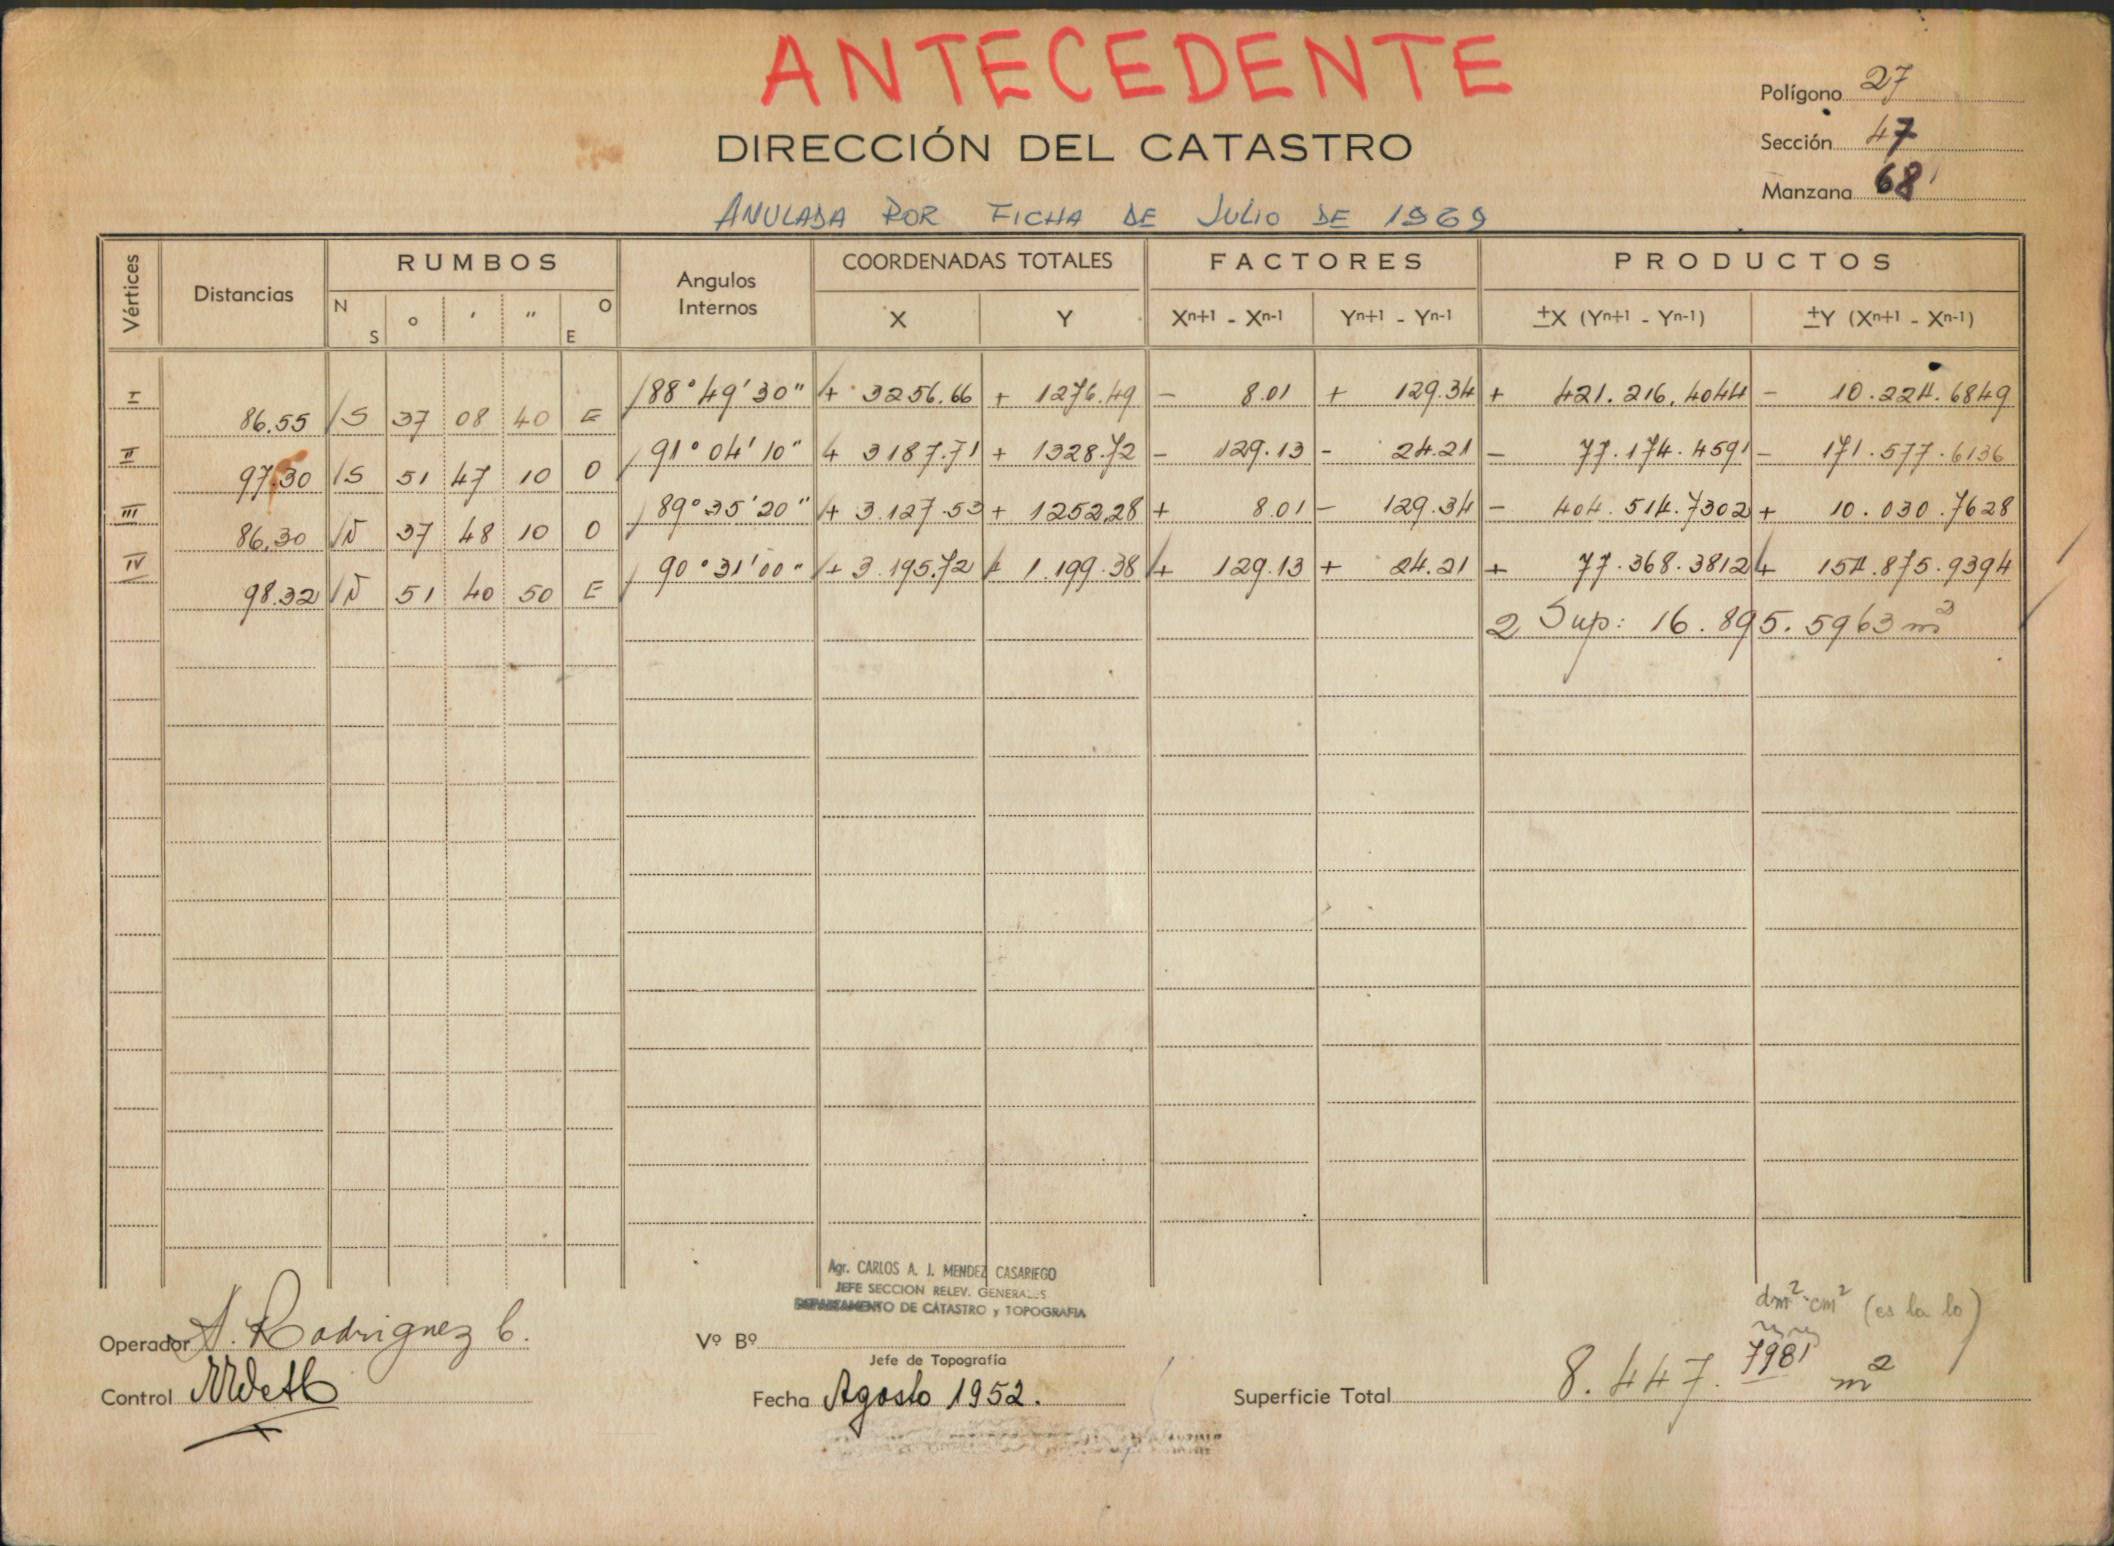 ANTECEDENTE
Polígono 27
DIRECCIÓN DEL CATASTRO
Sección 47
Manzana 68'
ANULADA POR FICHA DE JULIO DE 1969
Vértices Distancias RUMBOS Angulos Internos COORDENADAS TOTALES FACTORES PRODUCTOS
N S o ' " O E X Y Xn+1 - Xn-1 Yn+1 - Yn-1 ±X (Yn+1 - Yn-1) ±Y (Xn+1 - Xn-1)
I 88°49'30" + 3256.66 + 1276.49 - 8.01 + 129.34 + 421.216.4044 - 10.224.6849
86.55 S 37 08 40 E
II 91°04'10" + 3187.71 + 1328.72 - 129.13 - 24.21 - 77.174.4591 - 171.577.6136
97.30 S 51 47 10 O
III 89°35'20" + 3.127.53 + 1252.28 + 8.01 - 129.34 - 404.514.7302 + 10.030.7628
86.30 N 37 48 10 O
IV 90°31'00" + 3.195.72 + 1.199.38 + 129.13 + 24.21 + 77.368.3812 + 154.875.9394
98.32 N 51 40 50 E
2 Sup: 16.895.5963 m²
Agr. CARLOS A. J. MENDEZ CASARIEGO
JEFE SECCION RELEV. GENERALES
DEPARTAMENTO DE CATASTRO y TOPOGRAFIA
dm² cm² (es la lo)
Operador A. Rodriguez C.
Vº Bº
Jefe de Topografía
Control
Fecha Agosto 1952.
Superficie Total 8.447.7981 m²